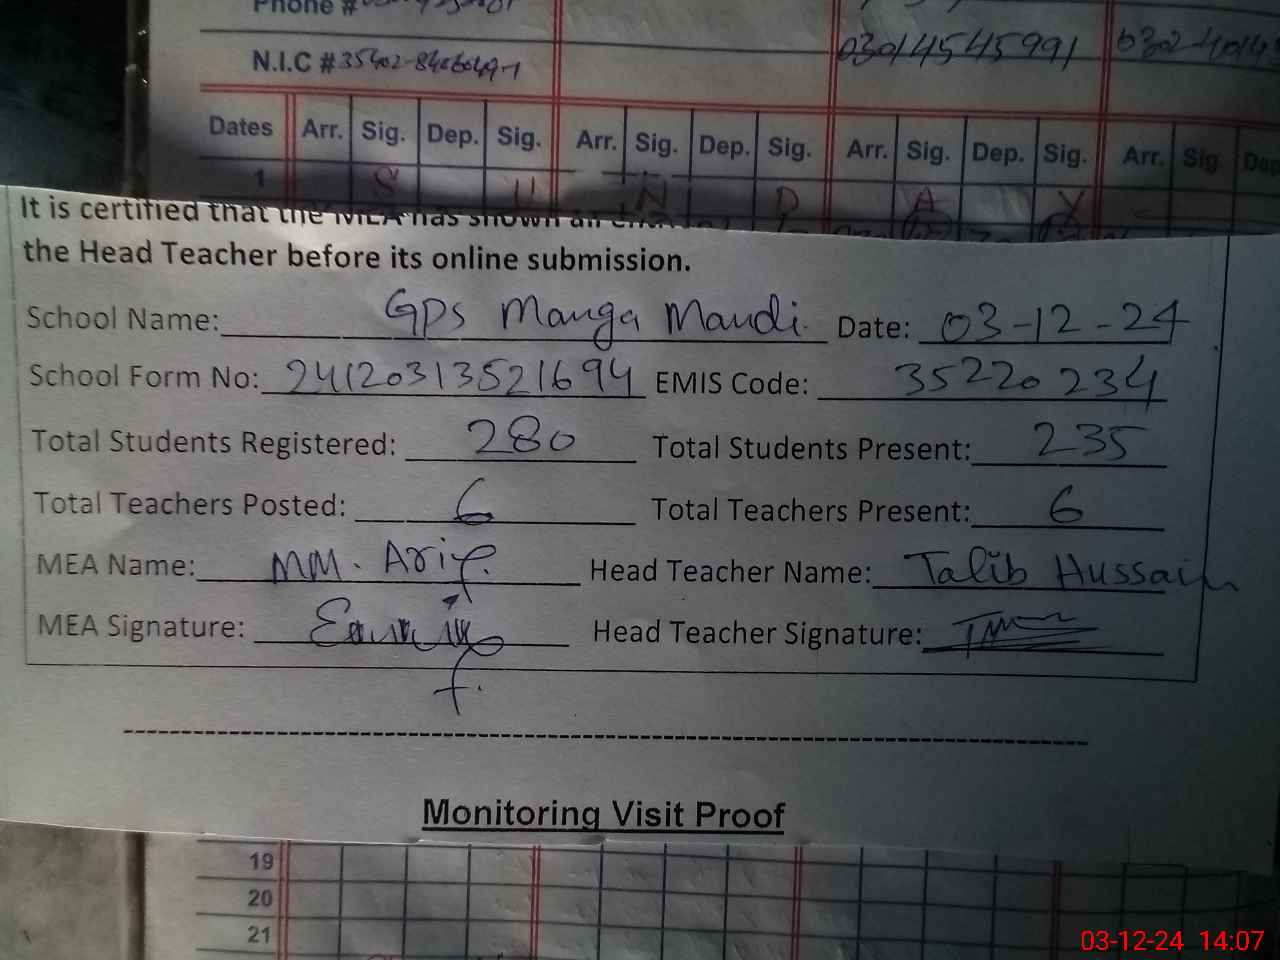 Phone #
N.I.C # 35402-8406049-1
03014545991
Dates Arr. Sig. Dep. Sig. Arr. Sig. Dep. Sig. Arr. Sig. Dep. Sig. Arr. Sig Dep
1 S U N D A Y
It is certified that the MEA has shown all
the Head Teacher before its online submission.
School Name: GPS Manga Mandi Date: 03-12-24
School Form No: 24120313521694 EMIS Code: 35220234
Total Students Registered: 280 Total Students Present: 235
Total Teachers Posted: 6 Total Teachers Present: 6
MEA Name: MM. Arif. Head Teacher Name: Talib Hussain
MEA Signature: Head Teacher Signature:
Monitoring Visit Proof
19
20
21
03-12-24 14:07